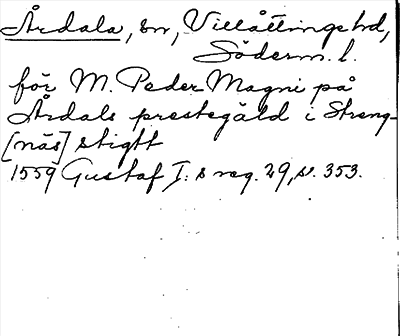 Årdala, sn, Villåttingehd,
Söderm. l.
för M. Peder Magni på
Årdals prestegäld i Streng-
[näs] stigtt
1559 Gustaf I:s reg. 29, s. 353.